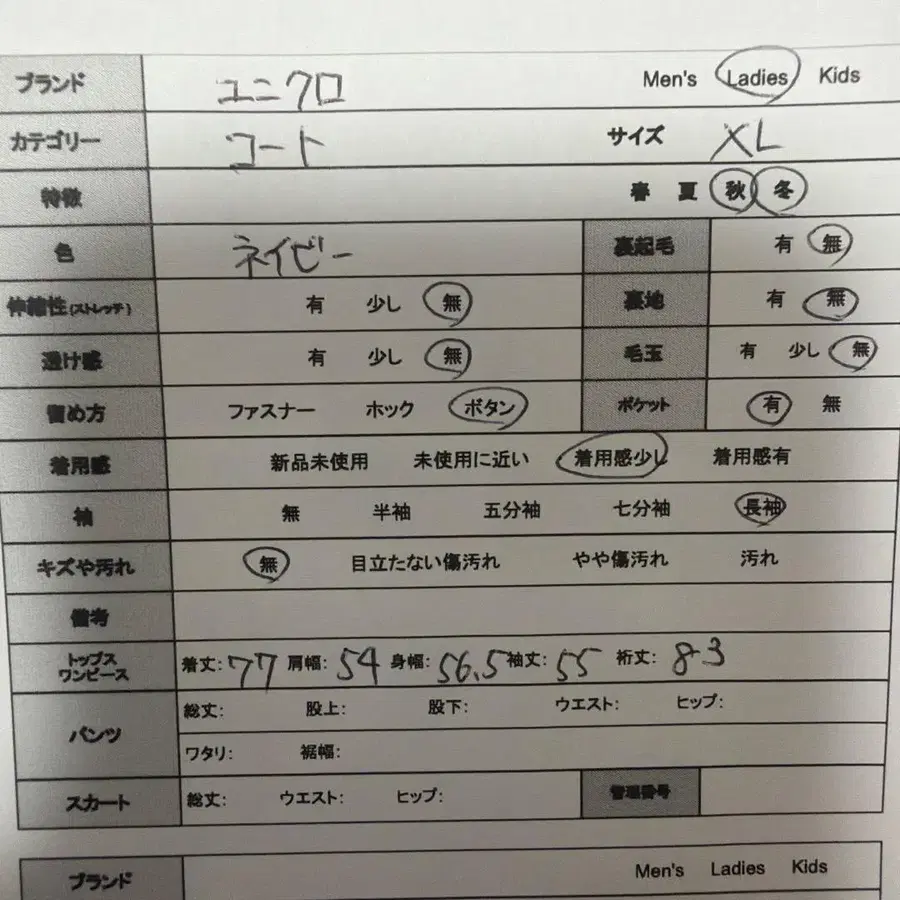 ブランド ユニクロ Men's Ladies Kids
カテゴリー コート サイズ XL
特徴 春 夏 秋 冬
色 ネイビー 裏起毛 有 無
伸縮性(ストレッチ) 有 少し 無 裏地 有 無
透け感 有 少し 無 毛玉 有 少し 無
留め方 ファスナー ホック ボタン ポケット 有 無
着用感 新品未使用 未使用に近い 着用感少し 着用感有
袖 無 半袖 五分袖 七分袖 長袖
キズや汚れ 無 目立たない傷汚れ やや傷汚れ 汚れ
備考
トップス
ワンピース
着丈: 77 肩幅: 54 身幅: 56.5 袖丈: 55 裄丈: 83
パンツ
総丈: 股上: 股下: ウエスト: ヒップ:
ワタリ: 裾幅:
スカート 総丈: ウエスト: ヒップ: 管理番号
ブランド Men's Ladies Kids